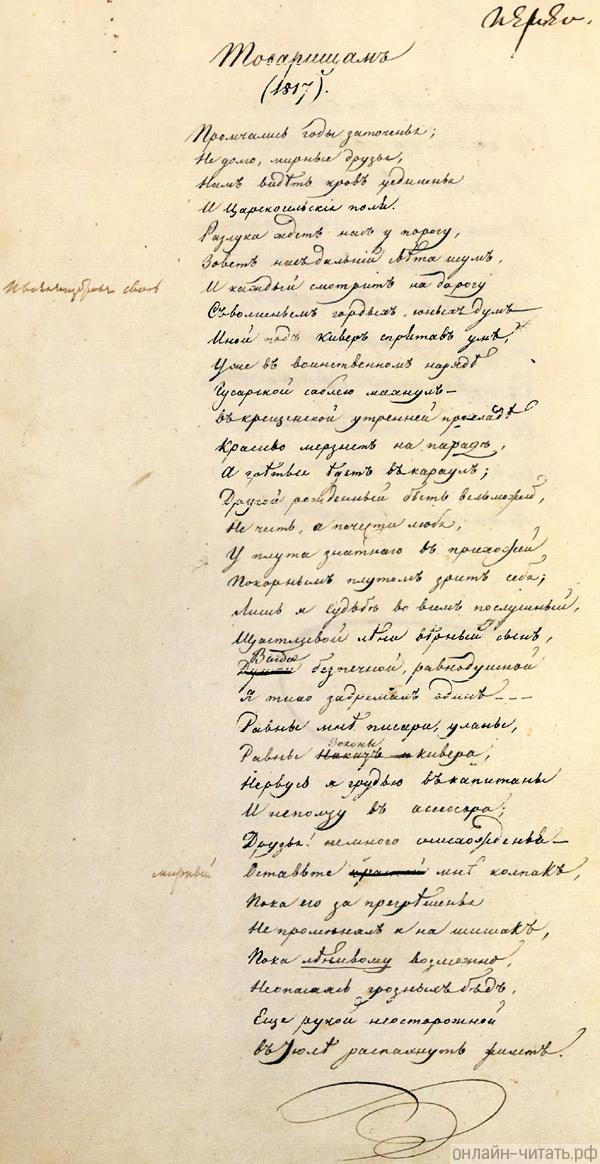 Товарищамъ
(1817).
Промчались годы заточенья;
Не долго, мирные друзья,
Намъ видѣть кровъ уединенья
И Царскосильскiя поля.
Разлука ждетъ насъ у порогу,
Зоветъ насъ дальнiй свѣта шумъ,
И каждый смотритъ на дорогу
Съ волненьемъ гордыхъ, юныхъ думъ
Иной подъ киверъ спрятавъ умъ,
Уже въ воинственномъ нарядѣ
Гусарской саблею махнулъ —
въ крещенской утренней прохладѣ
Красиво мерзнетъ на парадѣ,
А грѣться ѣдетъ въ караулъ;
Другой рожденный быть вельможей,
Не честь, а почести любя,
У плута знатнаго въ прихожей
Покорнымъ плутомъ зритъ себя;
Лишь я судьбѣ во всемъ послушный,
Щастливой лѣни вѣрный сынъ,
Душой безпечной, равнодушной
Я тихо задремалъ одинъ - - -
Равны мнѣ писари, уланы,
Законы
Равны Наказъ и кивера,
Нервусь я грудью въ капитаны
И неползу въ асессора;
Друзья! немного снисхожденья —
мирный
Оставьте красный мнѣ колпакъ,
Пока его за прегрѣшенья
Не промѣнялъ я на шишакъ,
Пока лѣнивому возможно,
Неопасаясь грозныхъ бѣдъ,
Еще рукой неосторожной
въ Iюлѣ распахнуть жилетъ.
онлайн-читать.рф